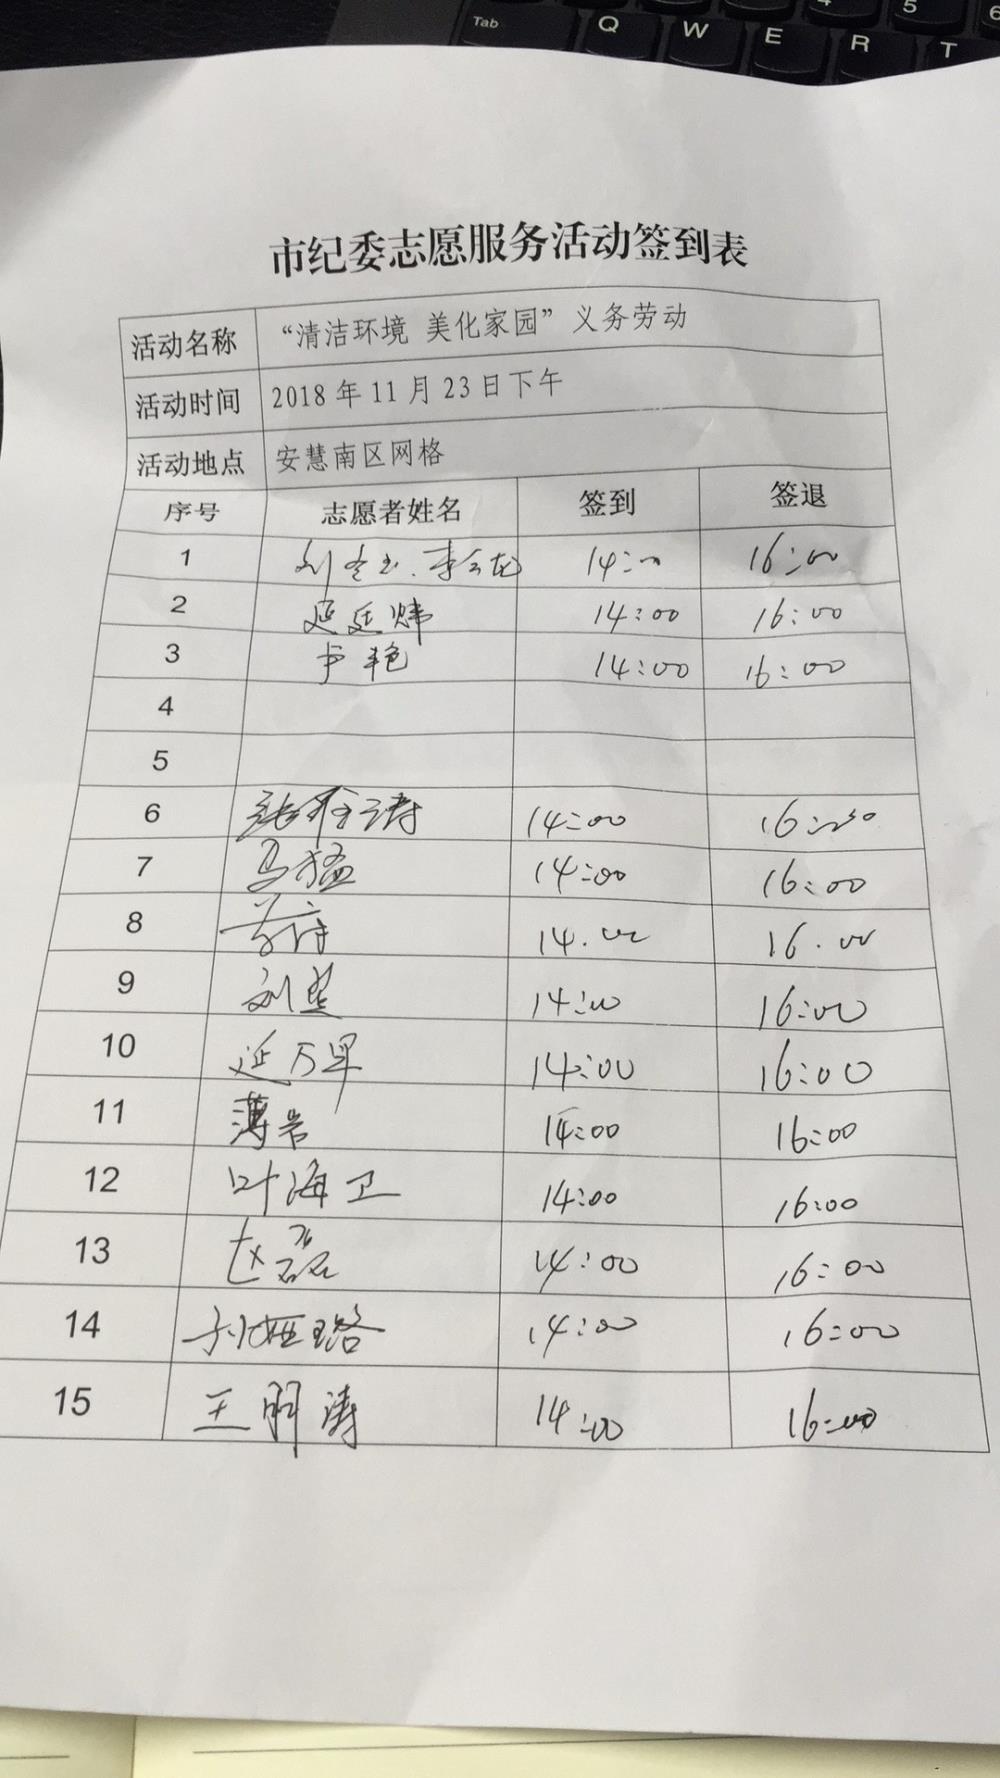 Tab Q W E R T 4 5 6
市纪委志愿服务活动签到表
活动名称 “清洁环境 美化家园”义务劳动
活动时间 2018年11月23日下午
活动地点 安慧南区网格
序号 志愿者姓名 签到 签退
1 14:00 16:00
2 延廷炜 14:00 16:00
3 卢艳 14:00 16:00
4
5
6 14:00
7 马猛 14:00 16:00
8 14.00 16.00
9 14:00 16:00
10 延万军 14:00 16:00
11 薄岩 14:00 16:00
12 叶海卫 14:00 16:00
13 赵磊 14:00 16:00
14 14:00 16:00
15 王朋涛 14:00 16:00